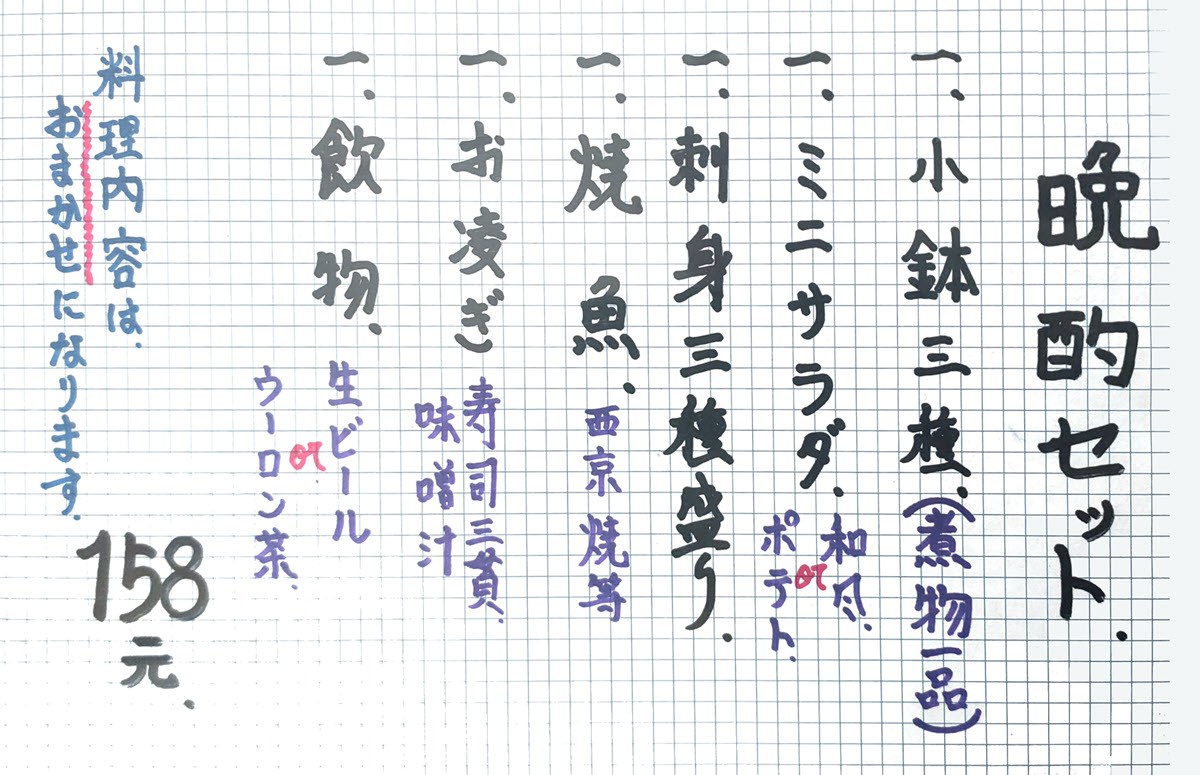 晩酌セット.
一.小鉢三種.(煮物一品)
一.ミニサラダ.和風.
orポテト.
一.刺身三種盛り.
一.焼魚.西京焼等
一.お凌ぎ寿司三貫、
味噌汁
一.飲物.生ビール
or
ウーロン茶.
料理内容は.
おまかせになります.
158元.